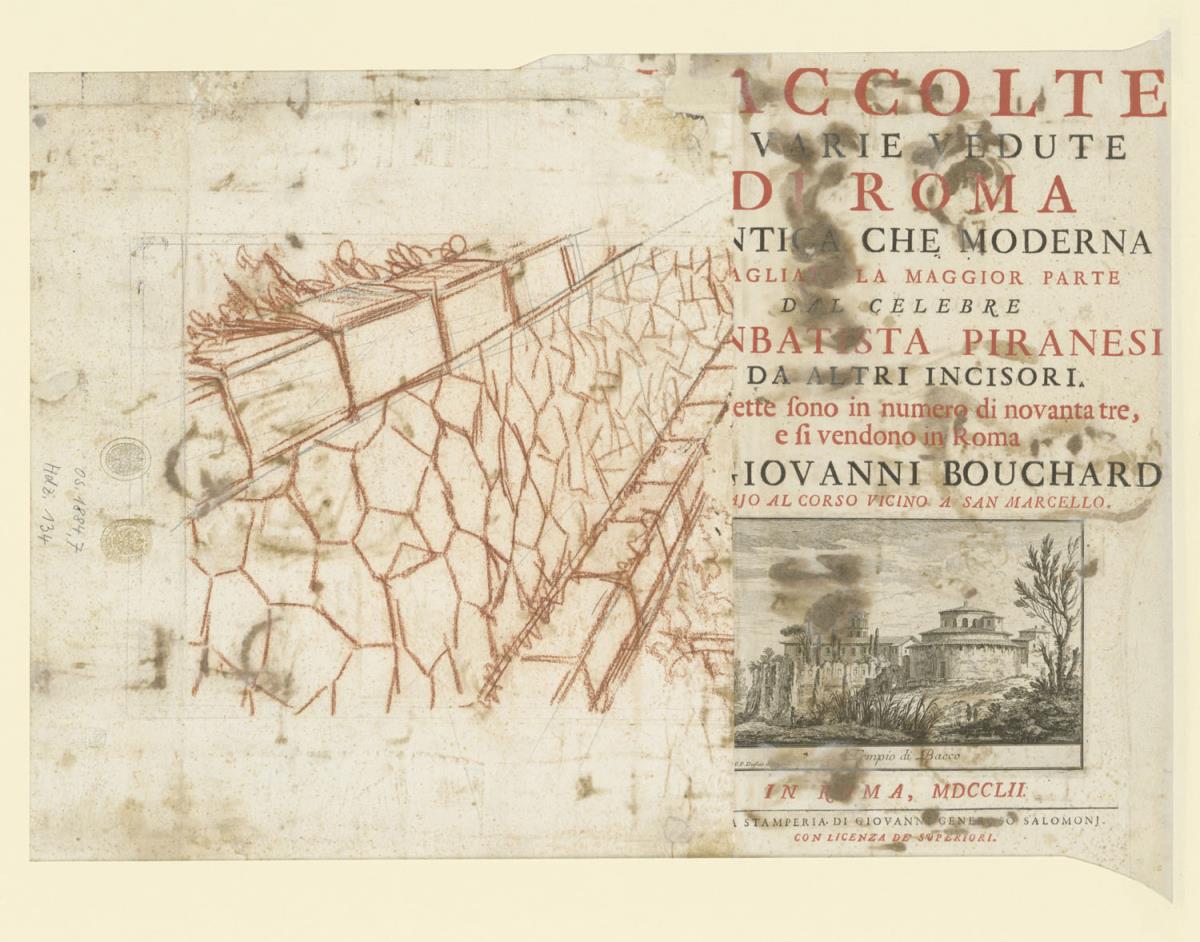 ACCOLTE
VARIE VEDUTE
DI ROMA
NTICA CHE MODERNA
AGLIATE LA MAGGIOR PARTE
DAL CELEBRE
NBATISTA PIRANESI
DA ALTRI INCISORI.
ette sono in numero di novanta tre,
e si vendono in Roma
GIOVANNI BOUCHARD
AJO AL CORSO VICINO A SAN MARCELLO.
Tempio di Bacco
IN ROMA, MDCCLII.
A STAMPERIA DI GIOVANNI GENEROSO SALOMONJ.
CON LICENZA DE' SUPERIORI.
OS. 1884,7
Hdz. 134